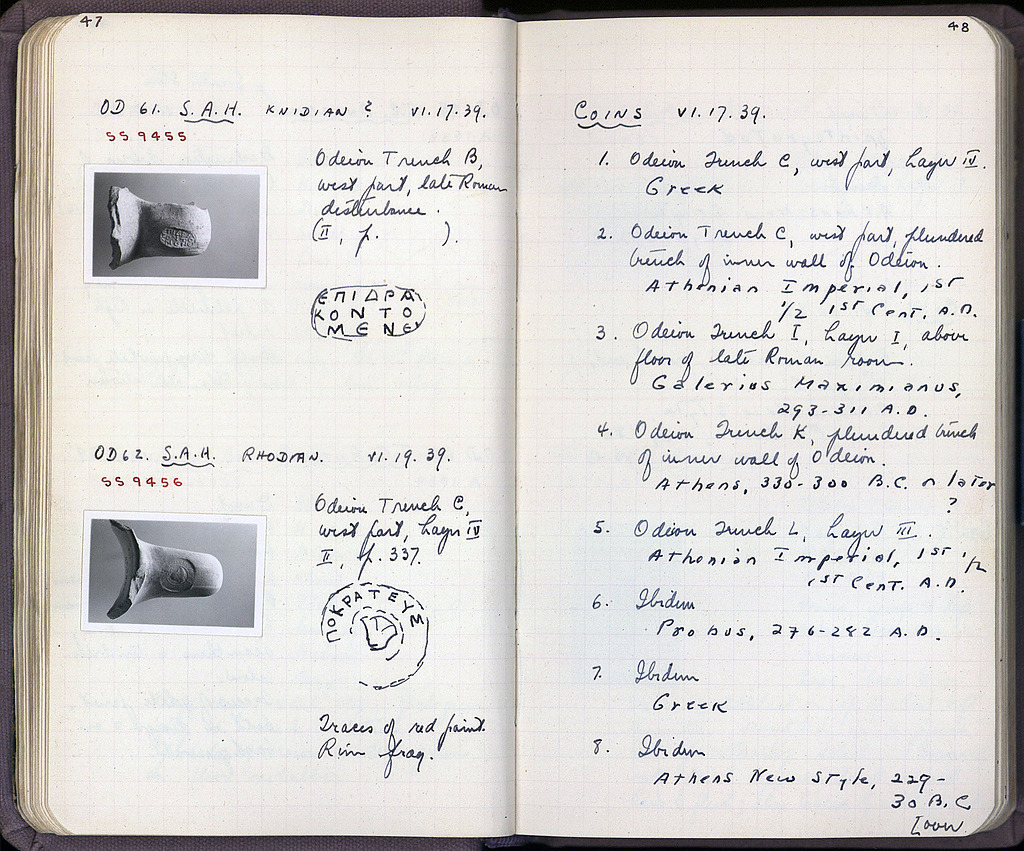 47
OD 61. S.A.H. KNIDIAN ? VI.17.39.
SS 9455
Odeion Trench B,
west part, late Roman
disturbance.
(II, p. ).
ΕΠΙΔΡΑ
ΚΟΝΤΟ
ΜΕΝΕ
OD 62. S.A.H. RHODIAN. VI.19.39.
SS 9456
Odeion Trench C,
west part, Layer IV
II, p. 337.
ΠΟΚΡΑΤΕΥΣ
Traces of red paint.
Rim frag.
48
COINS VI.17.39.
1. Odeion Trench C, west part, Layer IV.
Greek
2. Odeion Trench C, west part, plundered
trench of inner wall of Odeion.
Athenian Imperial, 1st
1/2 1st Cent. A.D.
3. Odeion Trench I, Layer I, above
floor of late Roman room.
Galerius Maximianus,
293-311 A.D.
4. Odeion Trench K, plundered trench
of inner wall of Odeion.
Athens, 330-300 B.C. or later
?
5. Odeion Trench L, Layer III.
Athenian Imperial, 1st 1/2
1st Cent. A.D.
6. Ibidem
Probus, 276-282 A.D.
7. Ibidem
Greek
8. Ibidem
Athens New Style, 229-
30 B.C.
[over